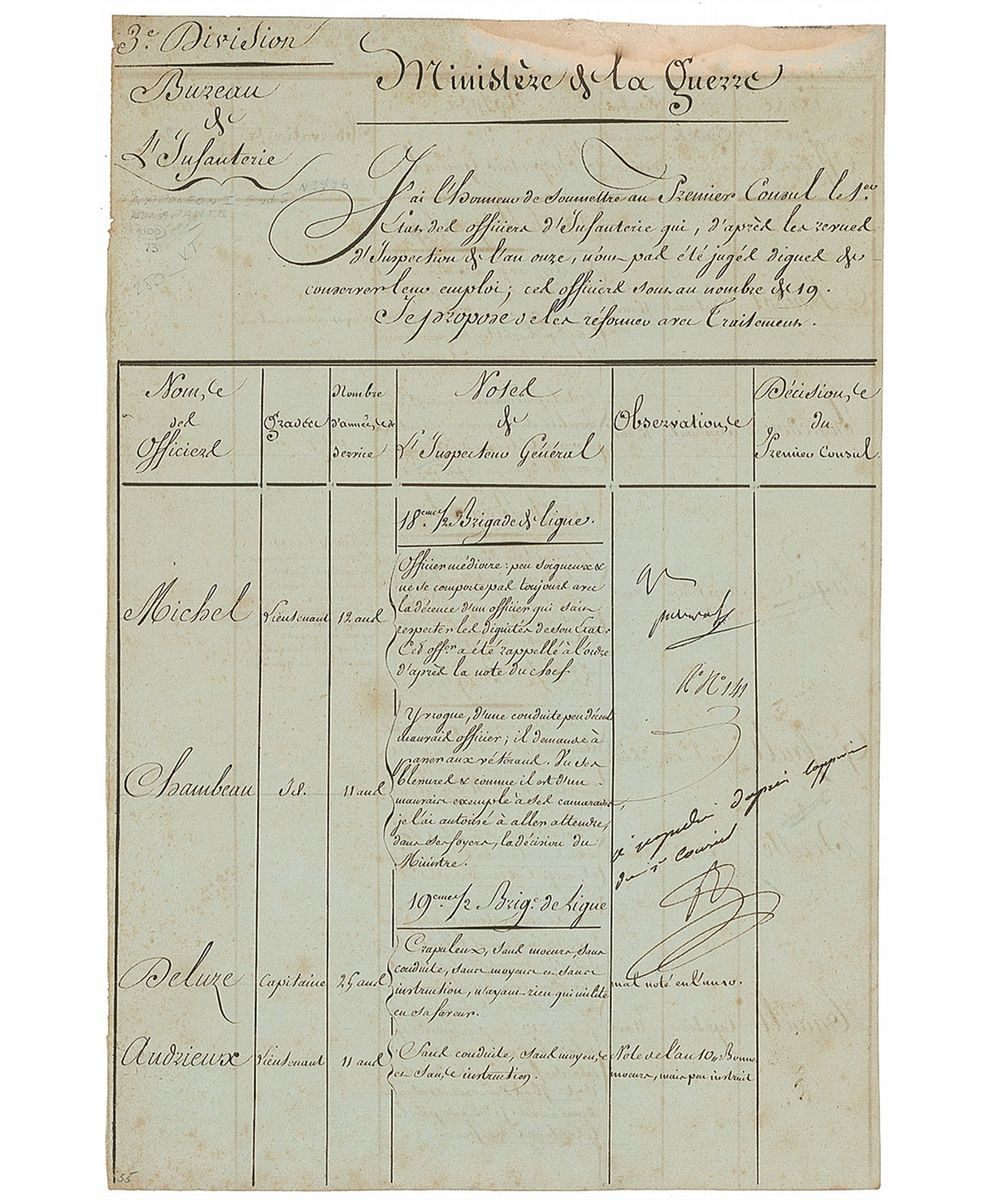 3e. Division
Ministère de la Guerre
Bureau
de
L'Infanterie
J'ai l'honneur de soumettre au Premier Consul le 1er.
Etat des officiers d'Infanterie qui, d'après les revues
d'Inspection de l'an onze, n'ont pas été jugés dignes de
conserver leur emploi; ces officiers sont au nombre de 19.
Je propose de les réformer avec Traitement.
Noms
des
Officiers
Grades
Nombre
d'années de
service
Notes
de
L'Inspecteur Général
Observations
Décisions
du
Premier Consul.
18eme. 1/2 Brigade de ligne.
Michel
Lieutenant
12 ans
Officier médiocre: peu soigneux &
ne se comporte pas toujours avec
la décence d'un officier qui sait
respecter les dignités de son Etat.
Cet offer. a été rappellé à l'ordre
d'après la note du chef.
No 141
Chambeau
Id.
11 ans
Yvrogne, d'une conduite peu décente
mauvais officier; il demande à
passer aux vétérans. Vu ses
blessures & comme il est d'un
mauvais exemple à ses camarades,
je l'ai autorisé à aller attendre,
dans ses foyers, la décision du
Ministre.
d'après
19eme. 1/2 Brige. de Ligne
Deluze
Capitaine
25 ans
Crapuleux, sans moeurs, sans
conduite, sans moyens et sans
instruction, n'ayant rien qui milite
en sa faveur.
mal noté en l'an 10.
Andrieux
Lieutenant
11 ans
Sans conduite, sans moyens
et sans instruction.
Note de l'an 10, Bonnes
moeurs, mais peu instruit
55